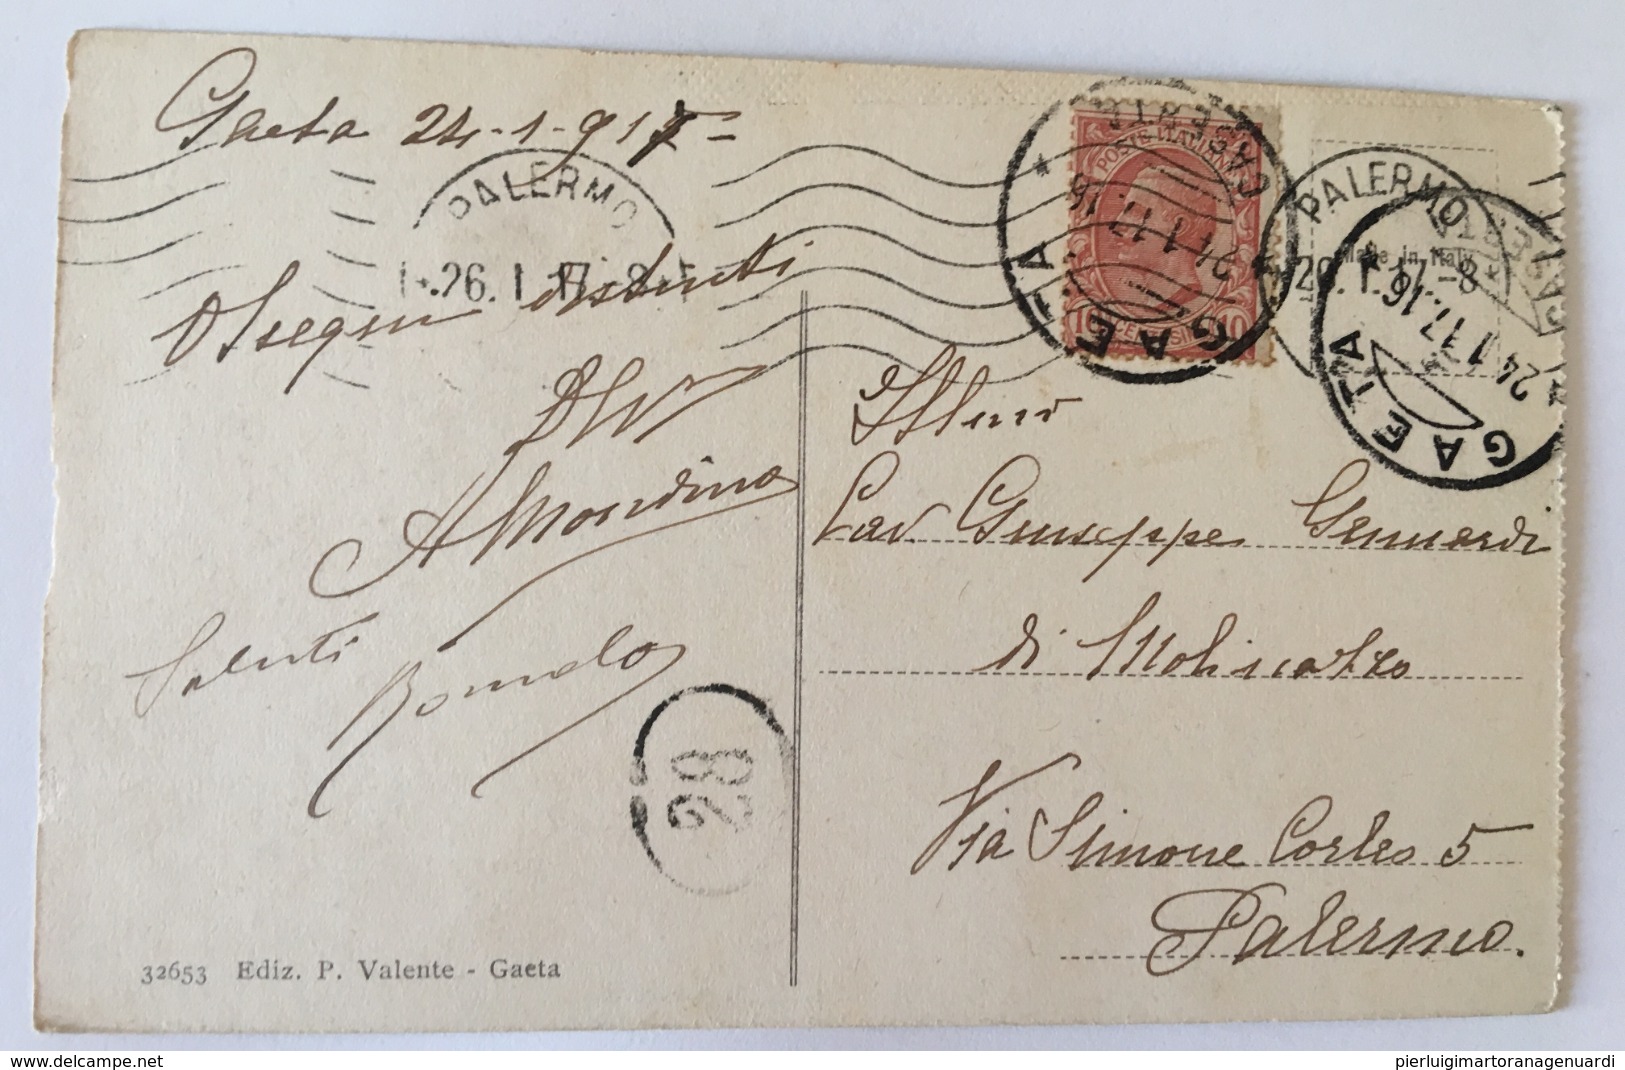 Gaeta 24-1-917
PALERMO
26.1.17.-8
Ossequi distinti
AMondino
Saluti
Romolo
28
32653 Ediz. P. Valente - Gaeta
POSTE ITALIANE
10 CENTESIMI 10
GAETA
CASERTA
24.1.17.16
PALERMO
26.1.17.-8
Made in Italy
GAETA
CASERTA
24.1.17.16
Illmo
Cav Giuseppe Genuardi
di Molinazzo
Via Simone Corleo 5
Palermo.
www.delcampe.net
pierluigimartoranagenuardi